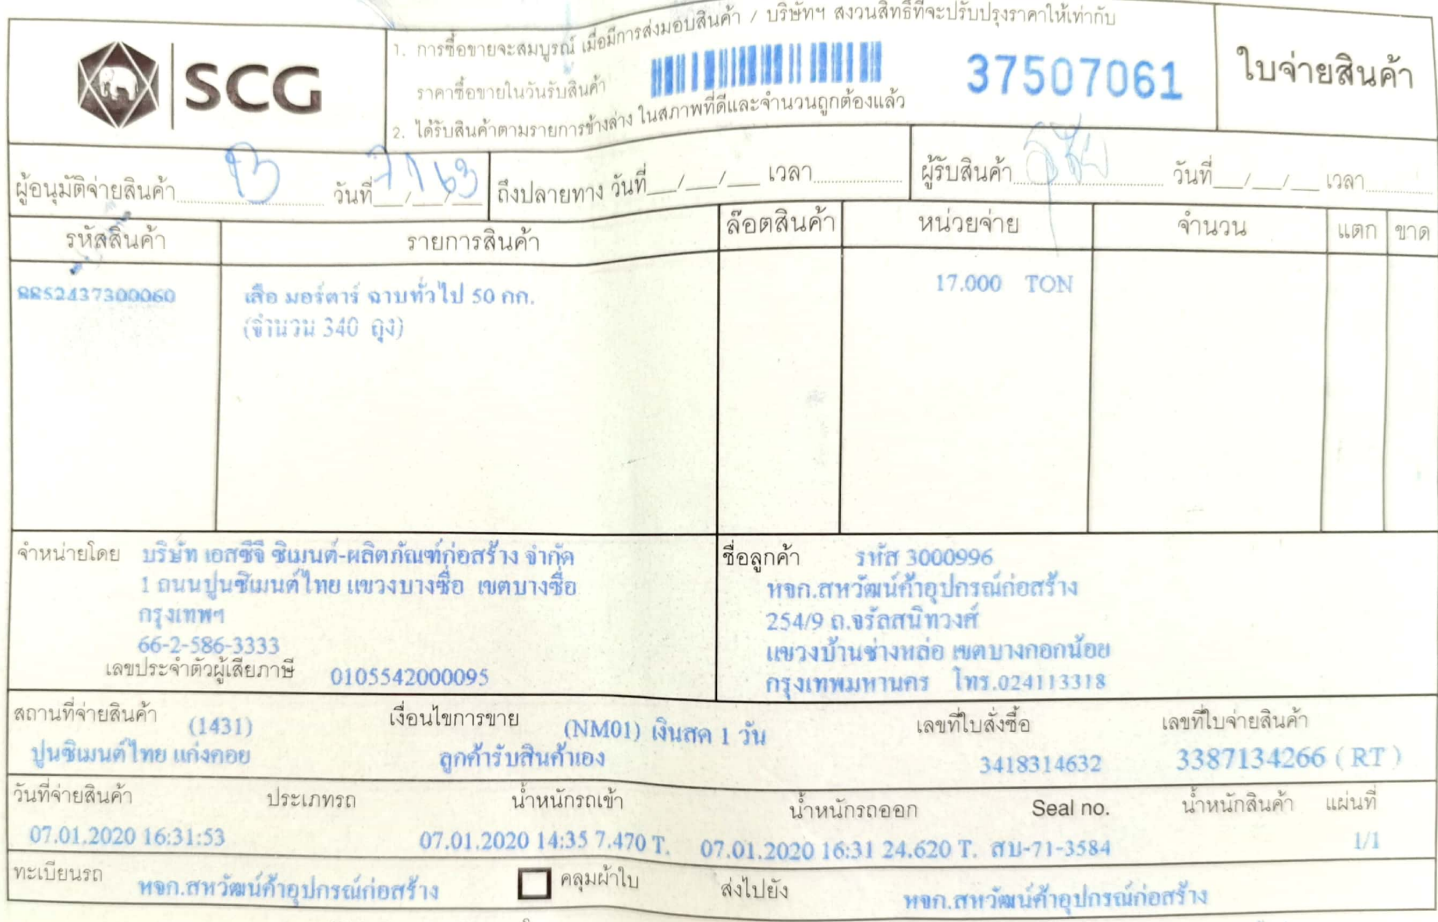 SCG
1. การซื้อขายจะสมบูรณ์ เมื่อมีการส่งมอบสินค้า / บริษัทฯ สงวนสิทธิ์ที่จะปรับปรุงราคาให้เท่ากับ
ราคาซื้อขายในวันรับสินค้า
2. ได้รับสินค้าตามรายการข้างล่าง ในสภาพที่ดีและจำนวนถูกต้องแล้ว
37507061
ใบจ่ายสินค้า
ผู้อนุมัติจ่ายสินค้า วันที่ 7/1/63 ถึงปลายทาง วันที่ __/__/__ เวลา ผู้รับสินค้า วันที่ __/__/__ เวลา
รหัสสินค้า รายการสินค้า ล๊อตสินค้า หน่วยจ่าย จำนวน แตก ขาด
8852437300060 เสือ มอร์ตาร์ ฉาบทั่วไป 50 กก. 17.000 TON
(จำนวน 340 ถุง)
จำหน่ายโดย บริษัท เอสซีจี ซิเมนต์-ผลิตภัณฑ์ก่อสร้าง จำกัด
1 ถนนปูนซิเมนต์ไทย แขวงบางซื่อ เขตบางซื่อ
กรุงเทพฯ
66-2-586-3333
เลขประจำตัวผู้เสียภาษี 0105542000095
ชื่อลูกค้า รหัส 3000996
หจก.สหวัฒน์ค้าอุปกรณ์ก่อสร้าง
254/9 ถ.จรัลสนิทวงศ์
แขวงบ้านช่างหล่อ เขตบางกอกน้อย
กรุงเทพมหานคร โทร.024113318
สถานที่จ่ายสินค้า (1431) เงื่อนไขการขาย (NM01) เงินสด 1 วัน เลขที่ใบสั่งซื้อ เลขที่ใบจ่ายสินค้า
ปูนซิเมนต์ไทย แก่งคอย ลูกค้ารับสินค้าเอง 3418314632 3387134266 ( RT )
วันที่จ่ายสินค้า ประเภทรถ น้ำหนักรถเข้า น้ำหนักรถออก Seal no. น้ำหนักสินค้า แผ่นที่
07.01.2020 16:31:53 07.01.2020 14:35 7.470 T. 07.01.2020 16:31 24.620 T. สบ-71-3584 1/1
ทะเบียนรถ หจก.สหวัฒน์ค้าอุปกรณ์ก่อสร้าง คลุมผ้าใบ ส่งไปยัง หจก.สหวัฒน์ค้าอุปกรณ์ก่อสร้าง